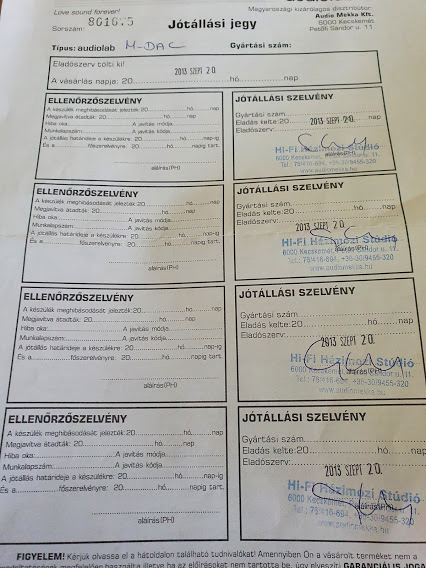 Love sound forever!
Magyarországi kizárólagos disztribútor:
Audio Mekka Kft.
6000 Kecskemét
Petőfi Sándor u. 11
Sorszám: 8616.5
Jótállási jegy
Típus: audiolab M-DAC
Gyártási szám:
Eladószerv tölti ki!
A vásárlás napja: 20 2013 SZEPT 20. hó nap
ELLENŐRZŐSZELVÉNY
A készülék meghibásodását jelezték: 20 hó nap
Megjavítva átadták: 20 hó nap
Hiba oka: A javítás módja
Munkalapszám: A javítás kódja
A jótállás határideje a készülékre: 20 hó nap-ig
És a főszerelvényre: 20 hó napig tart.
aláírás(PH)
JÓTÁLLÁSI SZELVÉNY
Gyártási szám
Eladás kelte: 20 2013 SZEPT 20. hó nap
Eladószerv:
Hi-Fi Házimozi Stúdió
6000 Kecskemét, u. 11.
Tel.: 76/416-694, +36-30/9455-320
www.audiomekka.hu
aláírás(PH)
ELLENŐRZŐSZELVÉNY
A készülék meghibásodását jelezték: 20 hó nap
Megjavítva átadták: 20 hó nap
Hiba oka: A javítás módja
Munkalapszám: A javítás kódja
A jótállás határideje a készülékre: 20 hó nap-ig
És a főszerelvényre: 20 hó napig tart.
aláírás(PH)
JÓTÁLLÁSI SZELVÉNY
Gyártási szám
Eladás kelte: 20 hó nap
Eladószerv: 2013 SZEPT 20.
Hi-Fi Házimozi Stúdió
6000 Kecskemét, u. 11.
Tel.: 76/416-694, +36-30/9455-320
www.audiomekka.hu
ELLENŐRZŐSZELVÉNY
A készülék meghibásodását jelezték: 20 hó nap
Megjavítva átadták: 20 hó nap
Hiba oka: A javítás módja
Munkalapszám: A javítás kódja
A jótállás határideje a készülékre: 20 hó nap-ig
És a főszerelvényre: 20 hó napig tart.
aláírás(PH)
JÓTÁLLÁSI SZELVÉNY
Gyártási szám
Eladás kelte: 20 hó nap
Eladószerv: 2013 SZEPT 20.
Hi-Fi
6000 Kecskemét, u. 11.
Tel.: 76/416-694, +36-30/9455-320
www.audiomekka.hu
ELLENŐRZŐSZELVÉNY
A készülék meghibásodását jelezték: 20 hó nap
Megjavítva átadták: 20 hó nap
Hiba oka: A javítás módja
Munkalapszám: A javítás kódja
A jótállás határideje a készülékre: 20 hó nap-ig
És a főszerelvényre: 20 hó napig tart.
aláírás(PH)
JÓTÁLLÁSI SZELVÉNY
Gyártási szám
Eladás kelte: 20 hó nap
Eladószerv:
2013 SZEPT 20.
Hi-Fi Házimozi Stúdió
6000 Kecskemét, u. 11.
www.audiomekka.hu
FIGYELEM! Kérjük olvassa el a hátoldalon található tudnivalókat! Amennyiben Ön a vásárolt terméket nem a